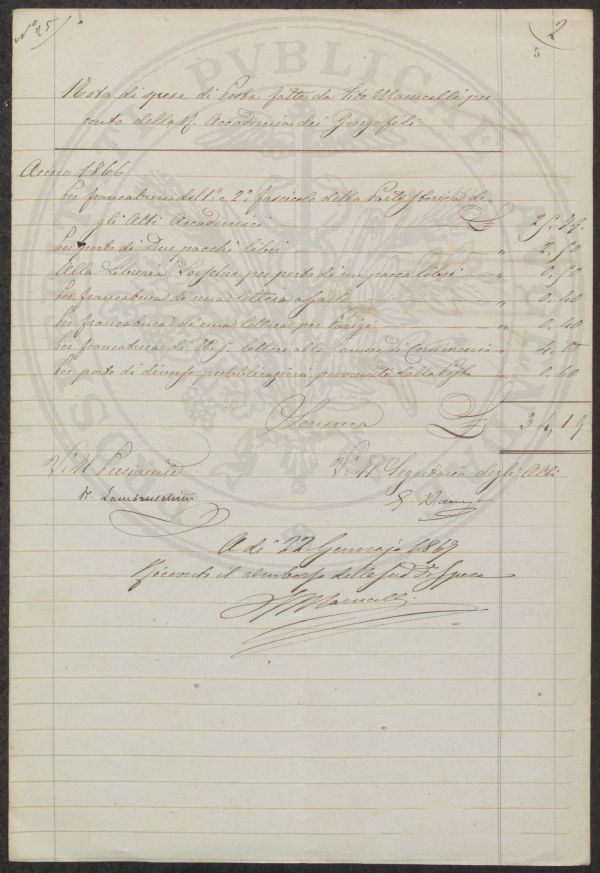 N° 25
2
5
Nota di spese di Posta fatte da Tito Marucelli per
conto della R. Accademia dei Georgofili
Anno 1866
Per francatura del 1° e 2° fascicolo della Parte Storica de-
gli Atti Accademici £
Per porto di due pacchi libri " 2. 50
Alla Libreria Loescher per porto di un pacco libri " 0. 50
Per francatura di una lettera a " 0. 40
Per francatura di una lettera per Parigi " 0. 40
Per francatura di lettere alle Camere di Commercio " 4.
Per porto di diverse pubblicazioni pervenute dalla Posta " 0. 60
Somma £ 19
V° Il Presidente
V° Il Segretario degli Atti
R. Lambruschini
A dì 22 Gennajo 1867
Ricevuto il rimborso delle sud.e Spese
T Marucelli